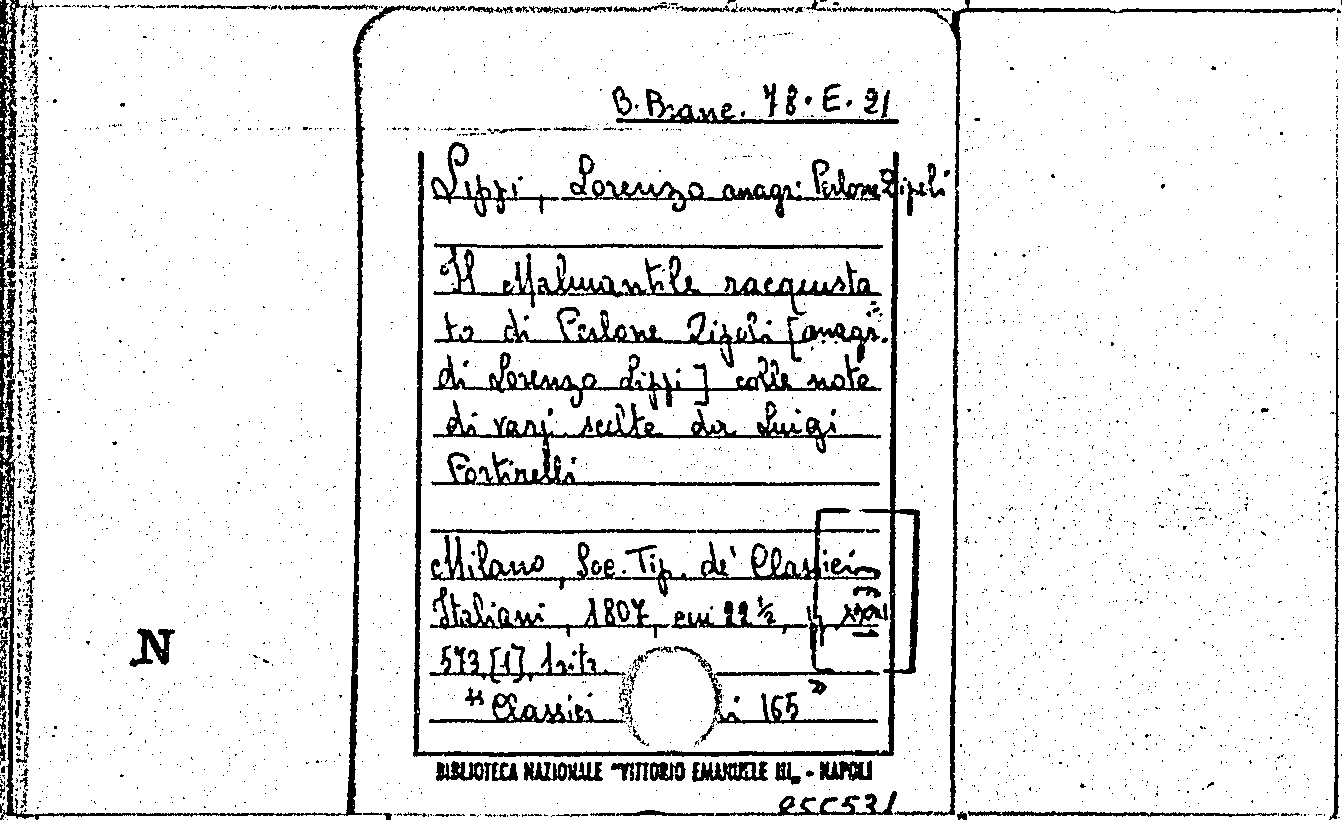 B. Branc. 78. E. 21
Lippi, Lorenzo anagr: Perlone Zipoli
Il Malmantile racquista
to di Perlone Zipoli [anagr.
di Lorenzo Lippi] colle note
di varj scelte da Luigi
Portirelli
Milano, Soc. Tip. de' Classici
Italiani, 1807, cm 22 ½,
573, [1], ritr.
"Classici i 165"
BIBLIOTECA NAZIONALE "VITTORIO EMANUELE III„ - NAPOLI
N